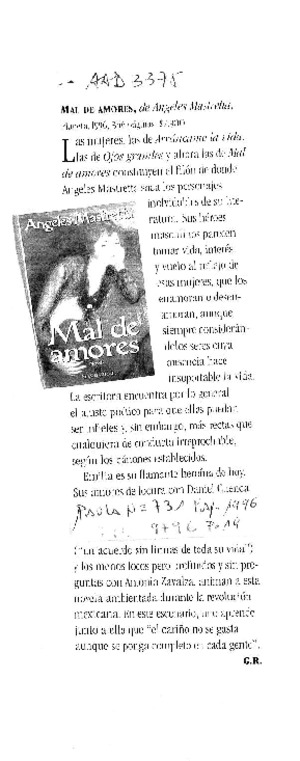 AAD 3375
MAL DE AMORES, de Angeles Mastretta.
1996, páginas
Las mujeres, las de Arráncame la vida,
las de Ojos grandes y ahora las de Mal
de amores constituyen el filón de donde
Angeles Mastretta saca los personajes
inolvidables de su lite-
ratura. Sus héroes
masculinos parecen
tomar vida, interés
y vuelo al reflejo de
esas mujeres, que los
enamoran o desen-
amoran, aunque
siempre considerán-
dolos seres cuya
ausencia hace
insoportable la vida.
Angeles Mastretta
Mal de
amores
La escritora encuentra por lo general
el ajuste poético para que ellas puedan
ser infieles y, sin embargo, más rectas que
cualquiera de conducta irreprochable,
según los cánones establecidos.
Emilia es su flamante heroína de hoy.
Sus amores de locura con Daniel Cuenca
Paula Nº 731 1996
P. 14
("un acuerdo sin firmas de toda su vida")
y los menos locos pero profundos y sin pre-
guntas con Antonio Zavalza, animan a esta
novela ambientada durante la revolución
mexicana. En este escenario, uno aprende
junto a ella que "el cariño no se gasta
aunque se ponga completo en cada gente".
G.R.